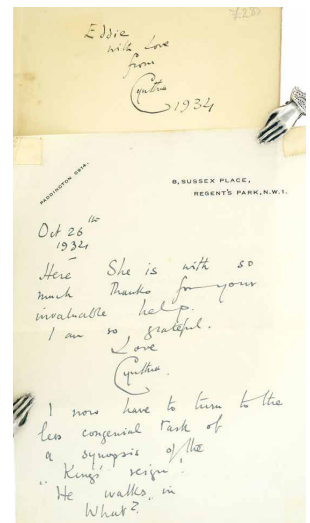 Eddie
with Love
from
Cynthia
1934
PADDINGTON
8, SUSSEX PLACE,
REGENT'S PARK, N.W.1.
Oct 26th
1934
Here She is with so
much Thanks for your
invaluable help.
I am so grateful.
Love
Cynthia.
I now have to turn to the
less congenial task of
a synopsis of the
"Kings' reign".
He walks in
What?